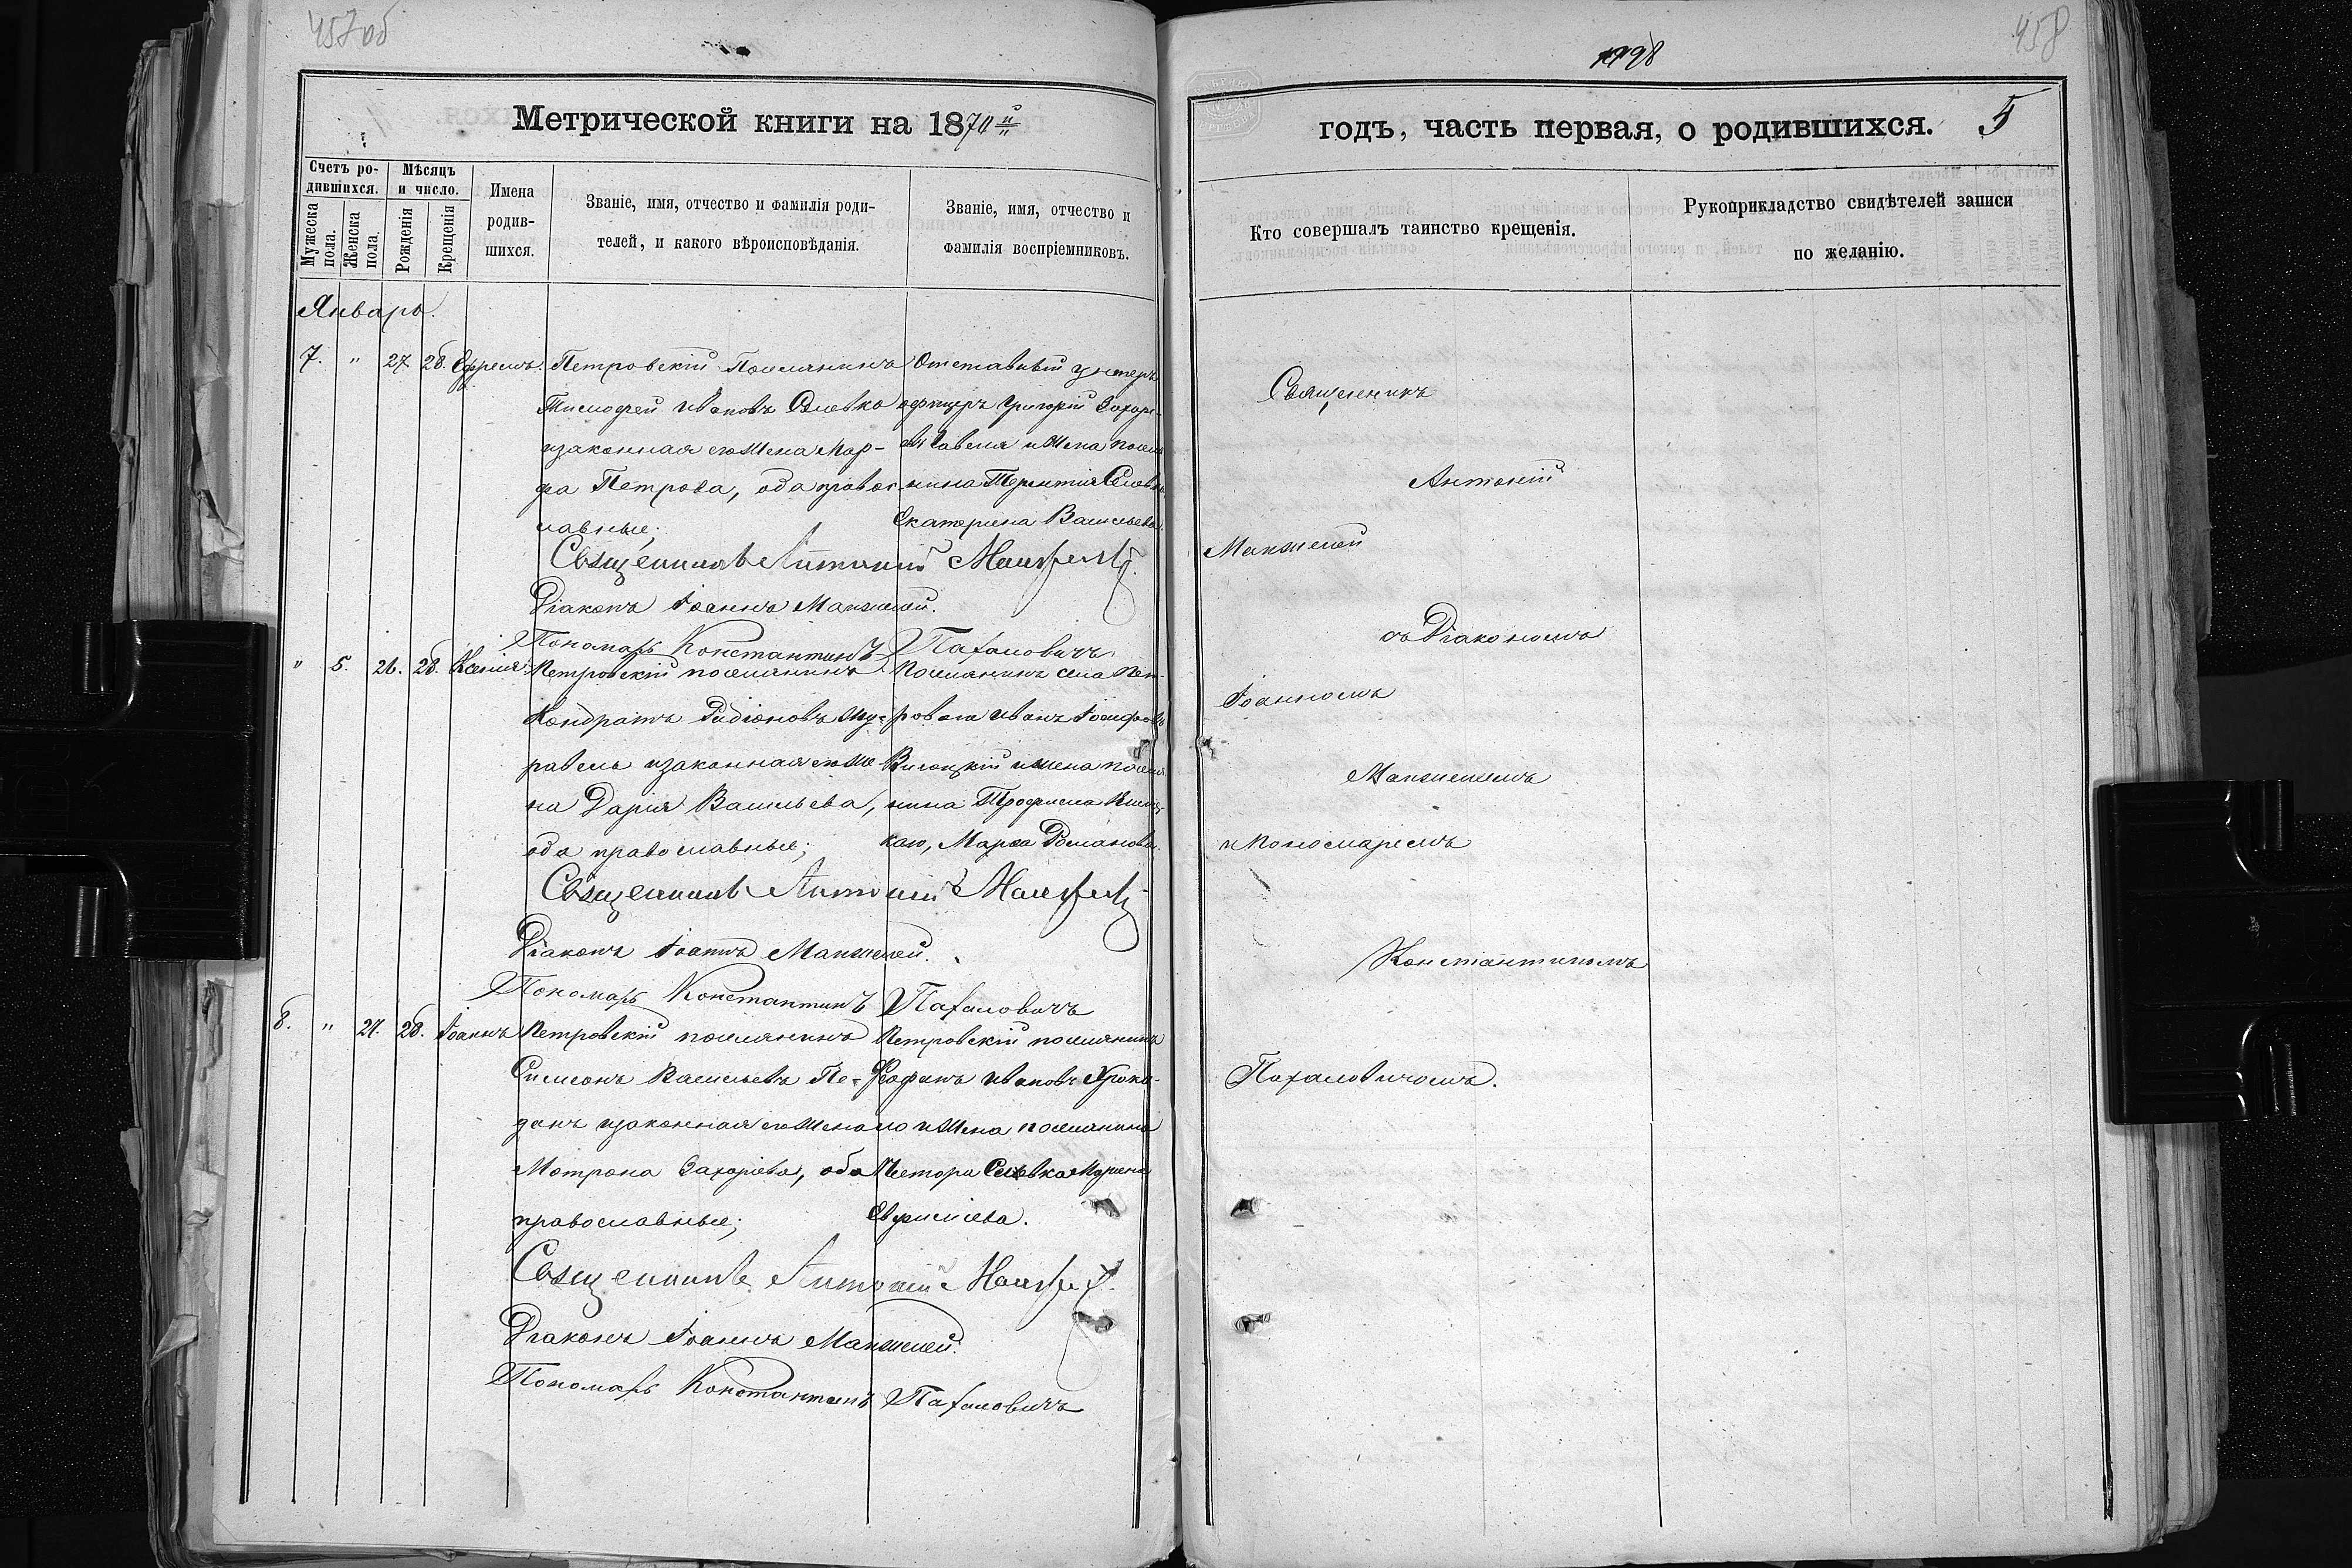 457 об
Метрической книги на 1874й
Счетъ ро-
дившихся.
Мѣсяцъ
и число.
Мужеска
пола.
Женска
пола.
Рожденія
Крещенія
Имена
родив-
шихся.
Званіе, имя, отчество и фамилія роди-
телей, и какого вѣроисповѣданія.
Званіе, имя, отчество и
фамилія воспріемниковъ.
Январь.
7. " 27 28. Ефремъ.
Петровскій Поселянинъ
Тимофей Ивановъ
изаконная его жена Мар-
фа Петрова, оба правос-
лавные;
Отставный унтеръ
офицеръ Григорій Захарі-
и жена посел
нина Терентія
Екатерина Васильева.
Священникъ Антоній
Діаконъ Іоаннъ Манжелей.
Пономарь Константинъ
" 5. 26. 28. Ксенія.
Петровскій поселянинъ
Кондратъ Радіоновъ Жу-
равель изаконная его же-
на Дарія Васильева,
оба православные;
Поселянинъ села Пет-
ровки Иванъ Іосифовъ
Висоцкій и жена посел
нина Трофима
каго, Марфа Романова.
Священникъ Антоній
Діаконъ Іоаннъ Манжелей.
Пономарь Константинъ
8. " 27. 28. Іоаннъ
Петровскій поселянинъ
Симеонъ Васильевъ Пе-
изаконная его жена
Матрона Захаріева, оба
православные;
Петровскій поселянинъ
Феофанъ Ивановъ
и жена поселянина
Нестора
Евфиміева.
Священникъ Антоній
Діаконъ Іоаннъ Манжелей.
Пономарь Константинъ
458
годъ, часть первая, о родившихся. 5
Кто совершалъ таинство крещенія.
Рукоприкладство свидѣтелей записи
по желанію.
Священникъ
Антоній
Манжелей
съ Діакономъ
Іоанномъ
Манжелеемъ
и Пономаремъ
Константиномъ